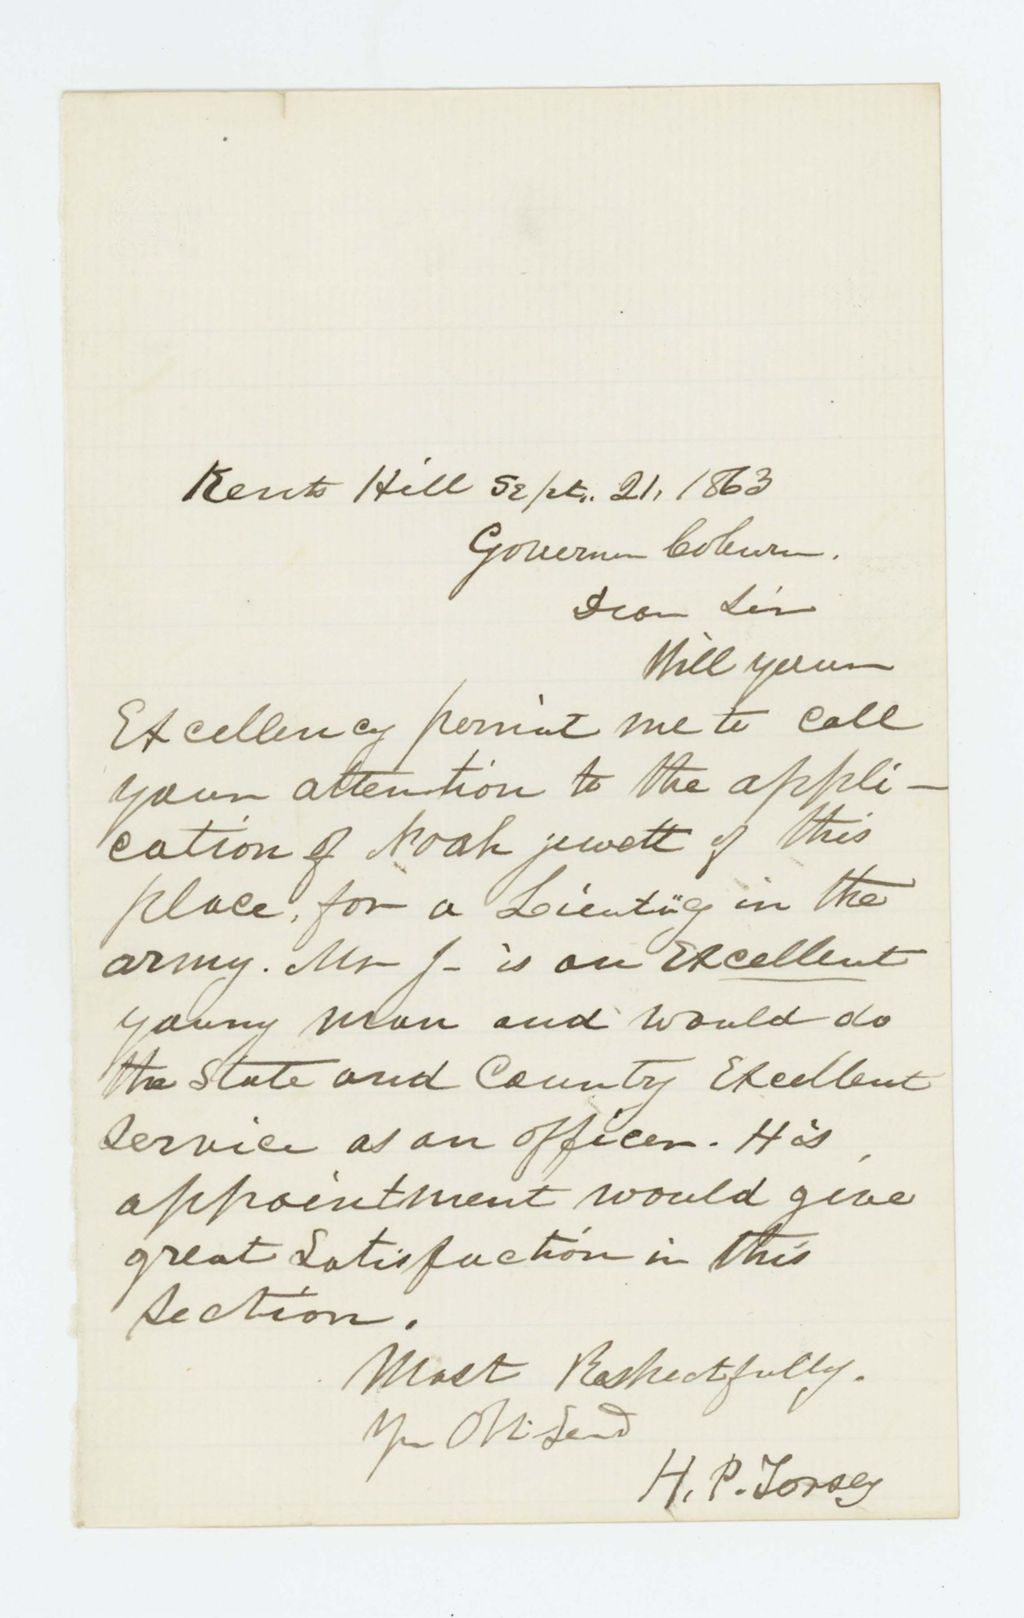 Kents Hill Sept. 21, 1863
Governor Coburn.
Dear Sir
Will your
Excellency permit me to call
your attention to the appli-
cation of Noah Jewett of this
place, for a Lieut'cy in the
army. Mr J- is an Excellent
young man and would do
the State and County Excellent
Service as an officer. His
appointment would give
great Satisfaction in this
Section.
Most Respectfully.
Yr Obt. Servt
H. P. Torsey